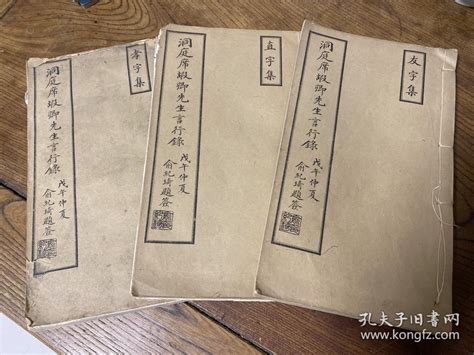 友字集
洞庭席嘏卿先生言行錄
戊午仲夏
俞紀琦題簽
直字集
洞庭席嘏卿先生言行錄
戊午仲夏
俞紀琦題簽
孝字集
洞庭席嘏卿先生言行錄
戊午仲夏
俞紀琦題簽
孔夫子旧书网
kongfz.com